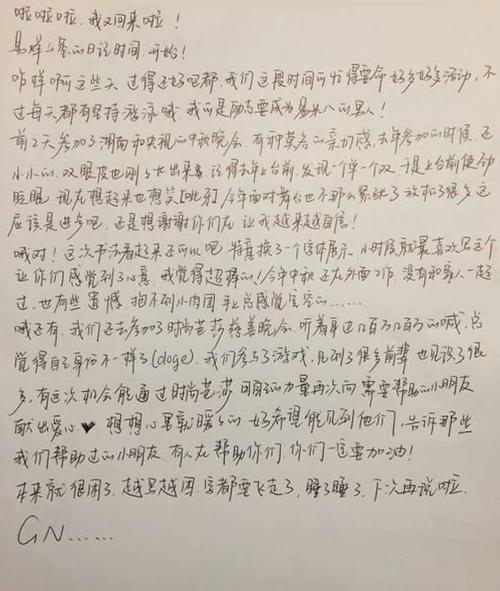 啦啦啦,我又回来啦!
易烊公爵的日记时间,开始!
咋样啊这些天 过得还好吧都,我们这段时间可忙得要命 好多好多活动,不
过每天都有坚持游泳哦 我可是励志要成为易米八的男人!
前2天参加了湖南和央视的中秋晚会,有种莫名的亲切感,去年参加的时候,还
小小的,双眼皮也刚
记得去年上台前,发现一个单一个双,于是上台前使命
眨眼,现在想起来也想笑[呲牙]今年面对舞台也不那么紧张了 放松了很多 这
应该是进步吧,还是想谢谢你们在 让我越来越自信!
哦对!这次书法看起来还可以吧,特意换了一个字体展示,小时候就最喜欢写这个
让你们感觉到了心意,我觉得超棒的!今年中秋还在外面工作,没有和家人一起
过,也有些遗憾,抱不到小肉团 手上总感觉空空的……
哦还有,我们还去参加了时尚芭莎慈善晚会,听着耳边几百万几百万的喊,总
觉得自己身份不一样了(doge),我们参与了游戏,见到了很多前辈 也见识了很
多,有这次机会能通过时尚芭莎
的力量再次向需要帮助的小朋友
献出爱心❤ 想想心里就暖暖的 好希望能见到他们,告诉那些
我们帮助过的小朋友,有人在帮助你们,你们一定要加油!
本来就很困了,越写越困,字都要飞走了,睡了睡了,下次再说啦,
GN……